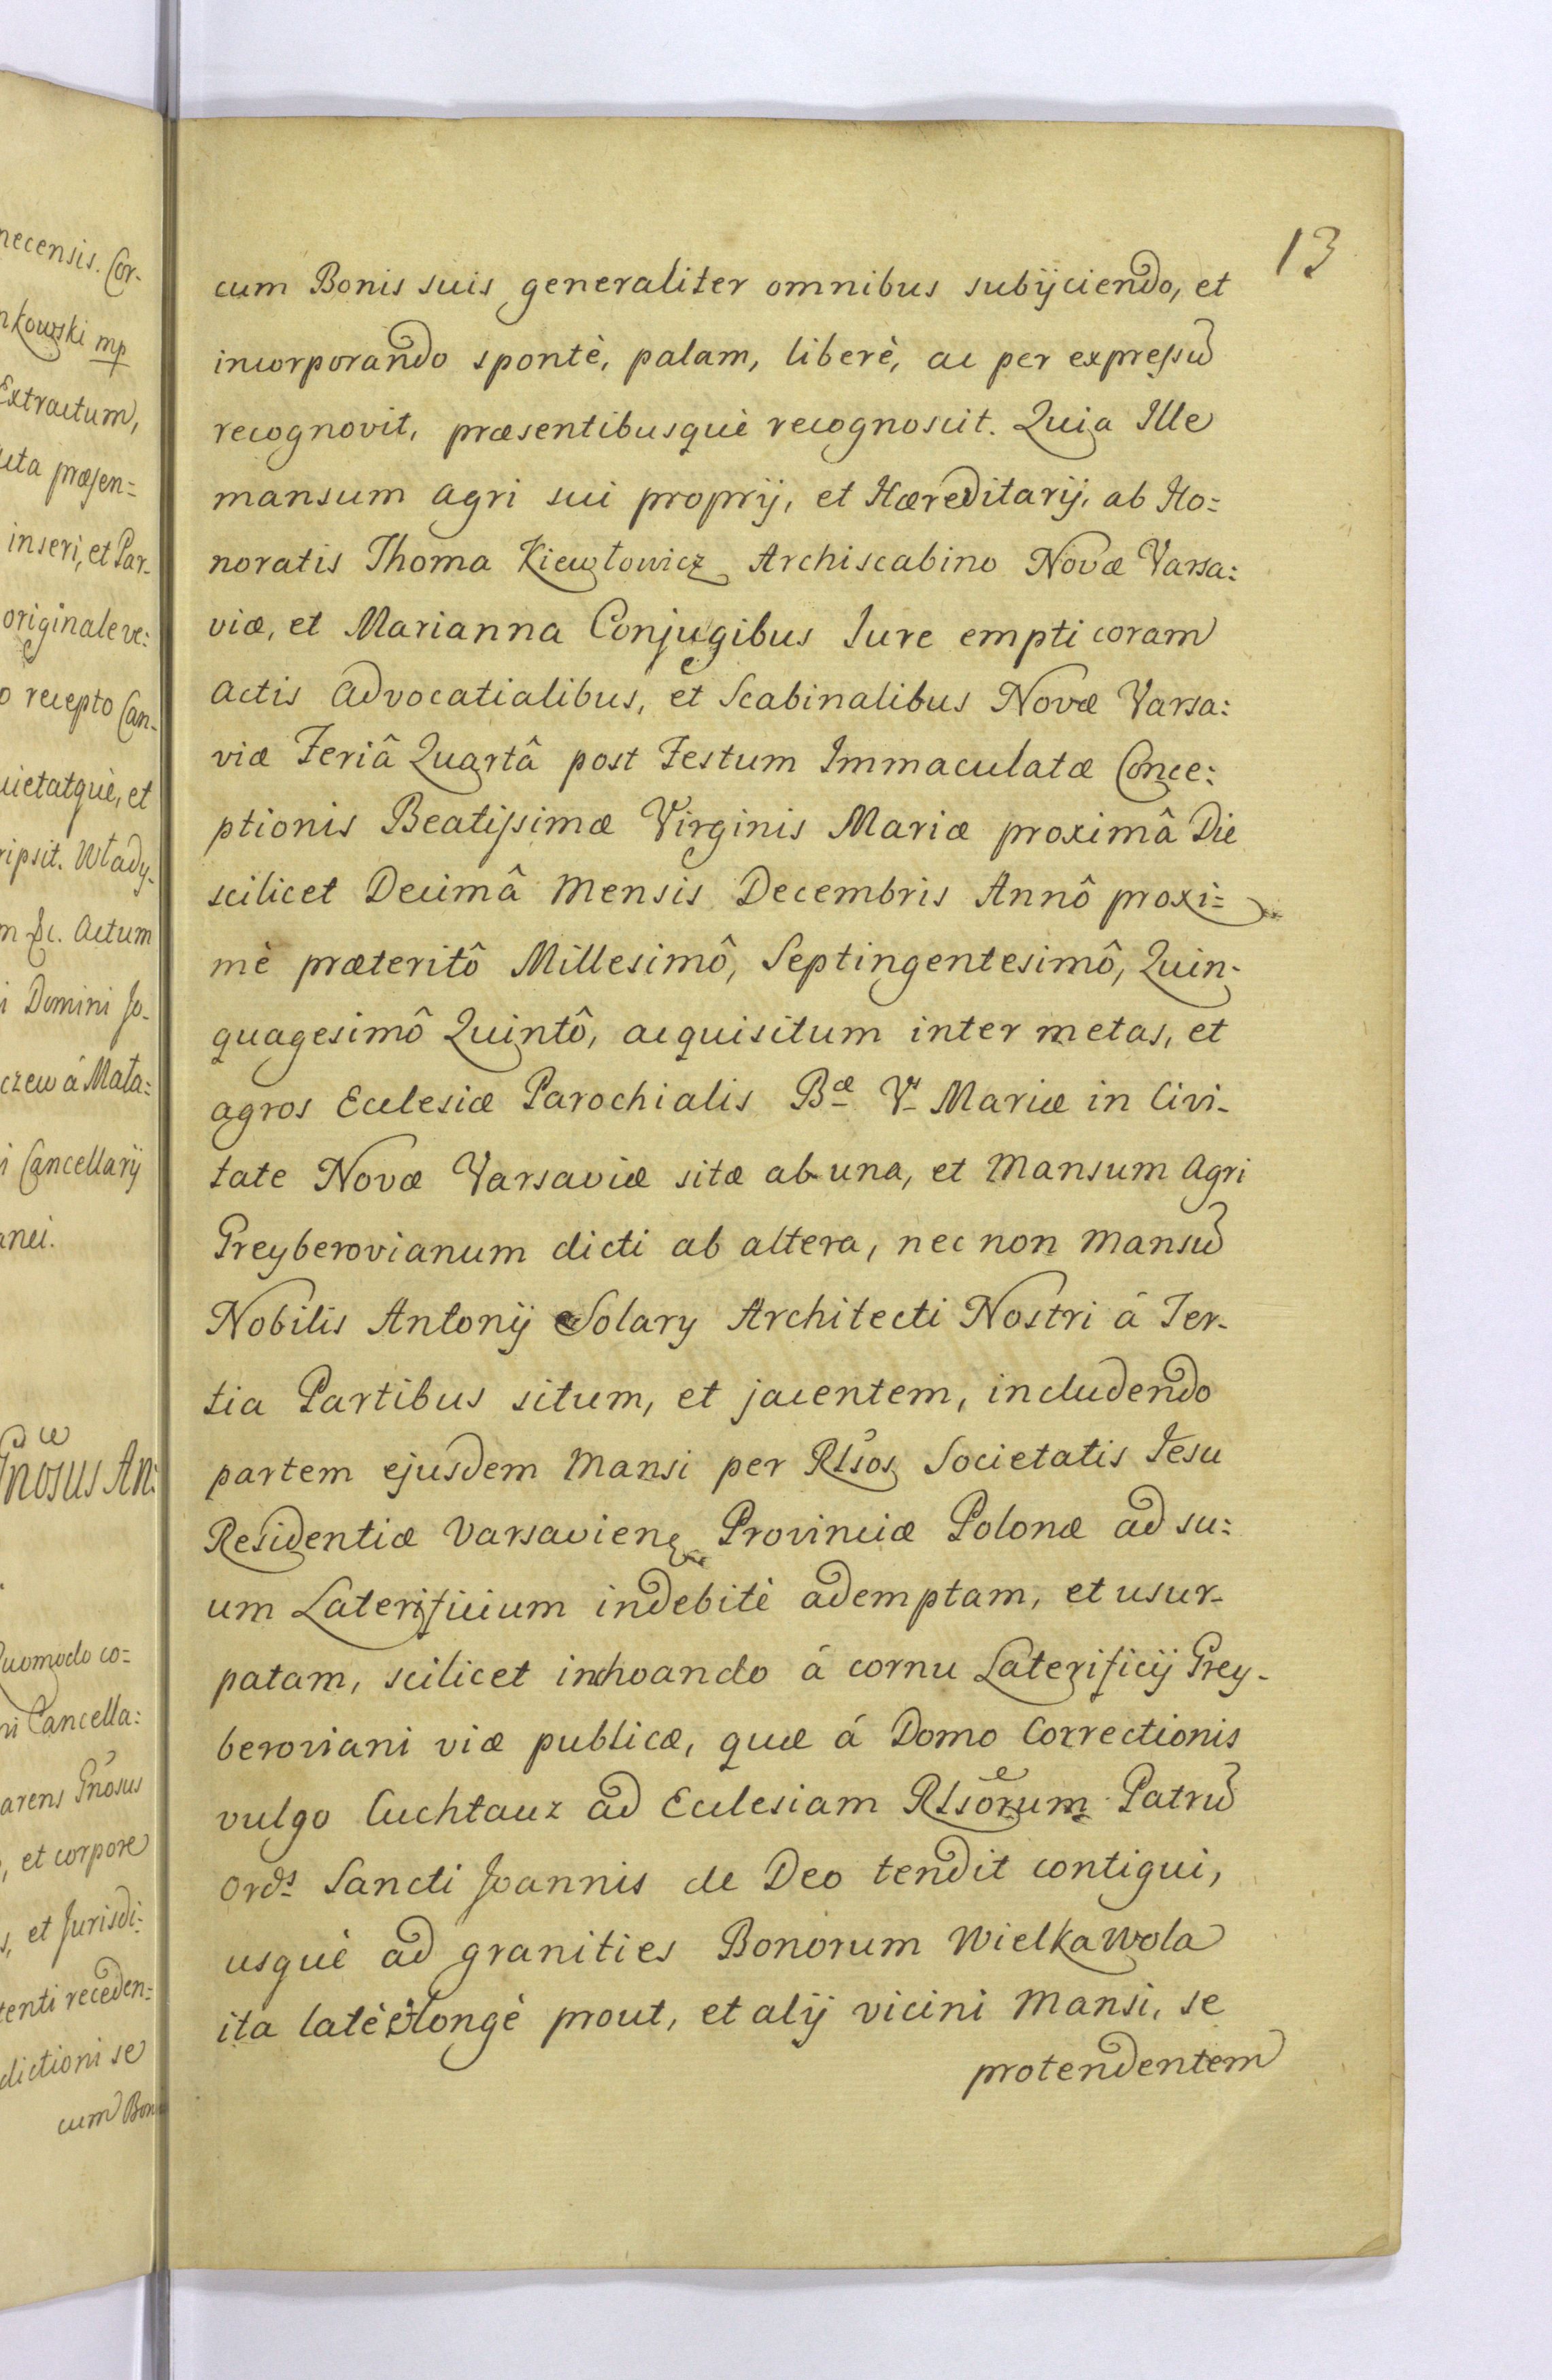 13
cum Bonis suis generaliter omnibus subijciendo, et
incorporando spontè, palam, liberè, ac per expressũ
recognovit, præsentibusquè recognoscit. Quia Ille
mansum agri sui proprij, et Hæreditarij, ab Ho=
noratis Thoma Kiewłowicz Archiscabino Novæ Varsa=
viæ, et Marianna Conjugibus Iure empti coram
actis advocatialibus, et Scabinalibus Novæ Varsa=
viæ Feriâ Quartâ post Festum Immaculatæ Conce=
ptionis Beatissimæ Virginis Mariæ proximâ Die
scilicet Decimâ Mensis Decembris Annô proxi=
mè præteritô Millesimô, Septingentesimô, Quin-
quagesimô Quintô, acquisitum inter metas, et
agros Ecclesiæ Parochialis Bæ Vs Mariæ in Civi-
tate Novæ Varsaviæ sitæ ab una, et Mansum Agri
Preyberovianum dicti ab altera, nec non Mansũ
Nobilis Antonij Solary Architecti Nostri á Ter-
tia Partibus situm, et jacentem, includendo
partem ejusdem Mansi per Rlsos Societatis Jesu
Residentiæ Varsavien Provinciæ Polonæ ad su=
um Laterificium indebitè ademptam, et usur-
patam, scilicet inchoando á cornu Laterificij Prey-
beroviani viæ publicæ, quæ á Domo Correctionis
vulgo Cuchtauz ad Ecclesiam Rlsorum Patrũ
Ords Sancti Joannis de Deo tendit contigui,
usquè ad granities Bonorum Wielka Wola
ita latè et longè prout, et alij vicini Mansi, se
protendentem
necensis. Cor-
nkowski mp
Extractum,
præsen=
inseri, et Par-
originale ve=
o recepto Can-
uietatquè, et
ripsit. Wlady-
Actum
i Domini Jo-
czew á Mała=
i Cancellarij
anei.
Gnosus An=
Quomodo co=
ni Cancella=
arens Gnosus
, et corpore
s, et Jurisdi=
tenti receden=
dictioni se
cum Bon